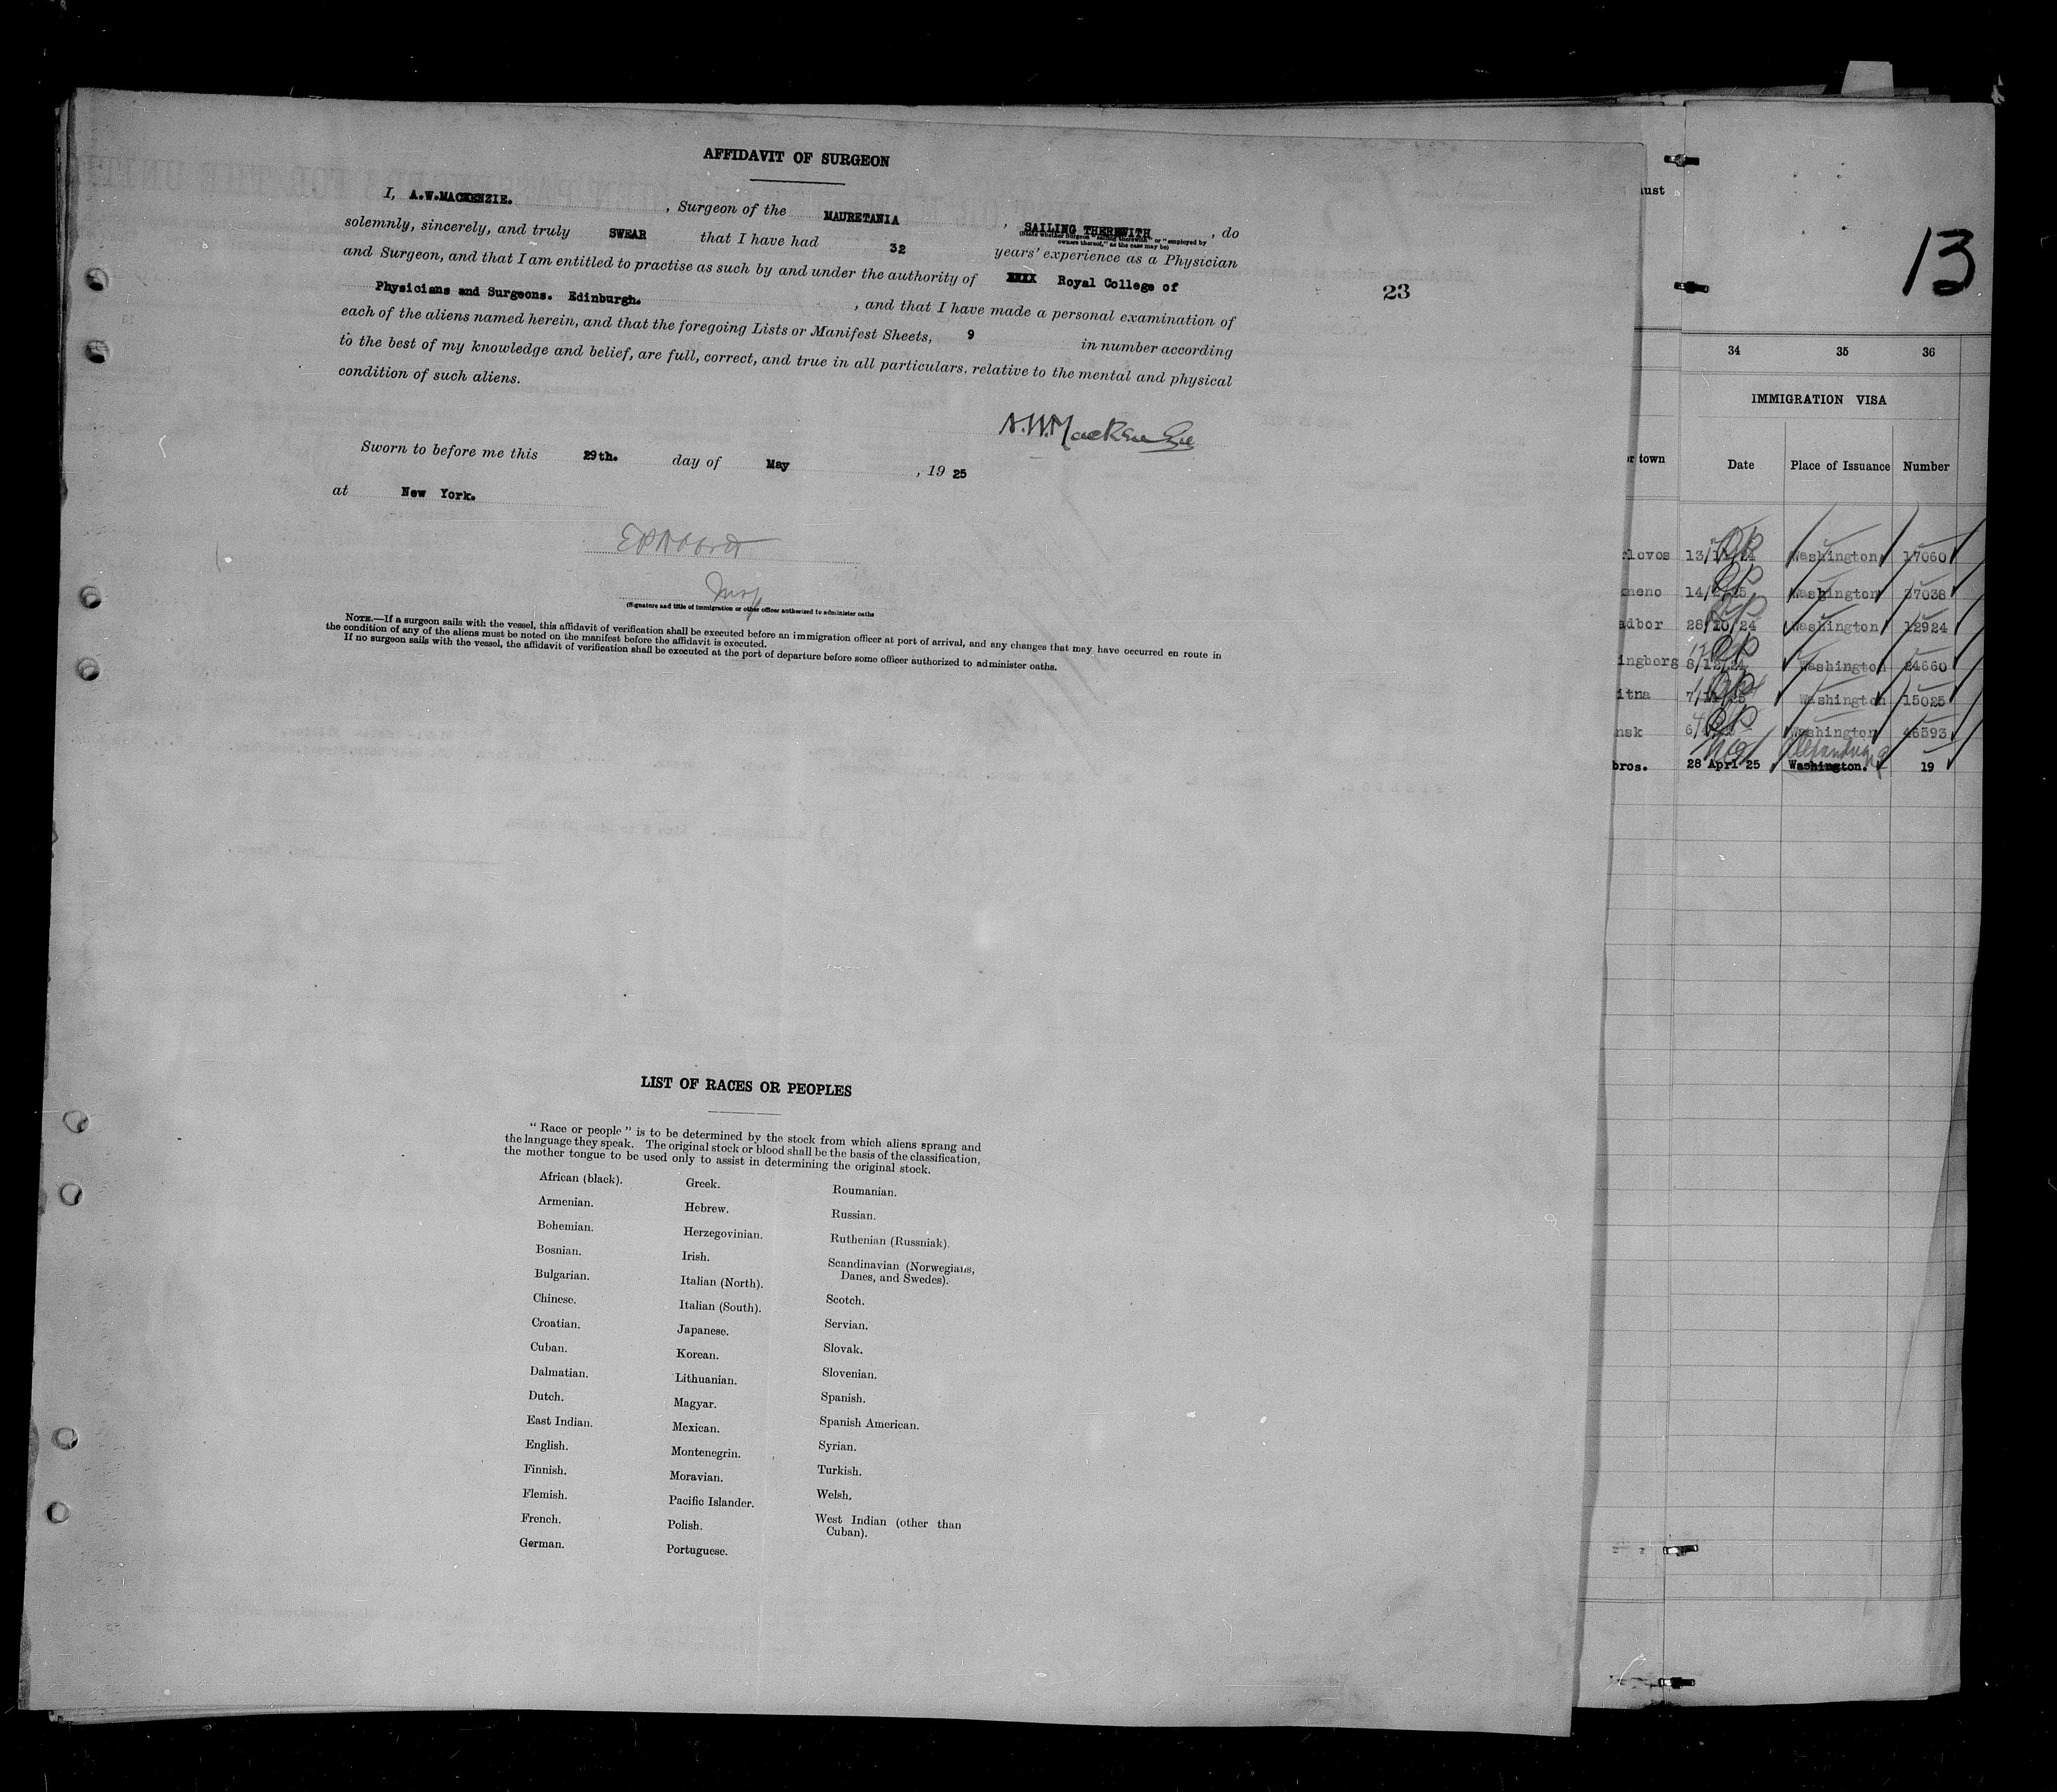 AFFIDAVIT OF SURGEON
I, A.W.MACKENZIE. , Surgeon of the MAURETANIA , SAILING THEREWITH , do
(State whether Surgeon "sailing therewith" or "employed by
owners thereof," as the case may be)
solemnly, sincerely, and truly SWEAR that I have had 32 years' experience as a Physician
and Surgeon, and that I am entitled to practise as such by and under the authority of Royal College of
Physicians and Surgeons. Edinburgh. , and that I have made a personal examination of
each of the aliens named herein, and that the foregoing Lists or Manifest Sheets, 9 in number according
to the best of my knowledge and belief, are full, correct, and true in all particulars, relative to the mental and physical
condition of such aliens.
23
A.W. MacKenzie
Sworn to before me this 29th. day of May , 19 25
at New York.
Insp
(Signature and title of immigration or other officer authorized to administer oaths
NOTE.—If a surgeon sails with the vessel, this affidavit of verification shall be executed before an immigration officer at port of arrival, and any changes that may have occurred en route in
the condition of any of the aliens must be noted on the manifest before the affidavit is executed.
If no surgeon sails with the vessel, the affidavit of verification shall be executed at the port of departure before some officer authorized to administer oaths.
LIST OF RACES OR PEOPLES
"Race or people" is to be determined by the stock from which aliens sprang and
the language they speak. The original stock or blood shall be the basis of the classification,
the mother tongue to be used only to assist in determining the original stock.
African (black).
Armenian.
Bohemian.
Bosnian.
Bulgarian.
Chinese.
Croatian.
Cuban.
Dalmatian.
Dutch.
East Indian.
English.
Finnish.
Flemish.
French.
German.
Greek.
Hebrew.
Herzegovinian.
Irish.
Italian (North).
Italian (South).
Japanese.
Korean.
Lithuanian.
Magyar.
Mexican.
Montenegrin.
Moravian.
Pacific Islander.
Polish.
Portuguese.
Roumanian.
Russian.
Ruthenian (Russniak).
Scandinavian (Norwegians,
Danes, and Swedes).
Scotch.
Servian.
Slovak.
Slovenian.
Spanish.
Spanish American.
Syrian.
Turkish.
Welsh.
West Indian (other than
Cuban).
13
ust
34 35 36
IMMIGRATION VISA
or town Date Place of Issuance Number
lovos 13/11/24 Washington 17060
neno Washington 37038
adbor 28/10/24 Washington 12924
ingborg 8/12/24 Washington 24660
itna Washington 15025
nsk Washington 46593
Alexandria
bros. 28 Apr 25 Washington. 19